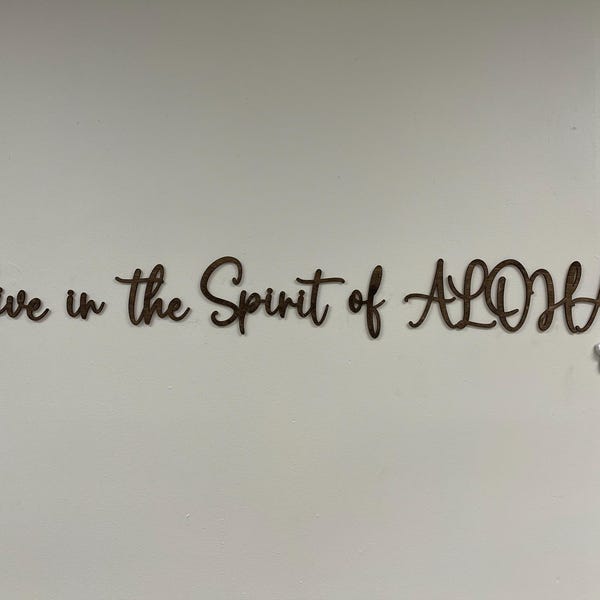 ive in the Spirit of ALOHA